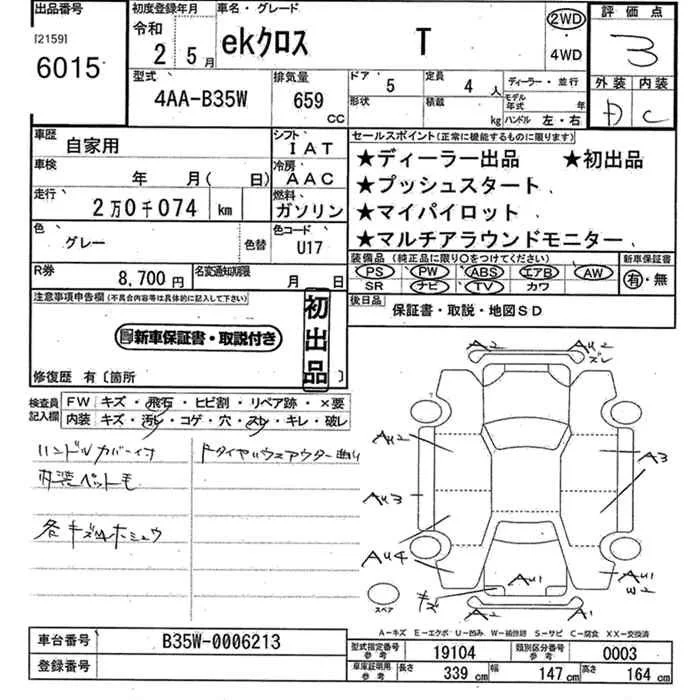 出品番号
[2159]
6015
初度登録年月
令和
2 5月
車名・グレード
ekクロス T
2WD
・
4WD
評価点
3
外装 内装
D C
型式
4AA-B35W
排気量
659
CC
ドア 5
定員 4 人
ディーラー・並行
形状
積載 kg
モデル年式 年
ハンドル 左・右
車歴 自家用
シフト IAT
車検 年 月( 日)
冷房 AAC
走行 2万0千074 km
燃料 ガソリン
色 グレー 色替
色コード U17
R券 8,700円
名変通知期限 月 日
セールスポイント(正常に機能するものに限ります)
★ディーラー出品 ★初出品
★プッシュスタート
★マイパイロット
★マルチアラウンドモニター
装備品 (純正品に限り○をつけてください)
PS PW ABS エアB AW
SR ナビ TV カワ
新車保証書
有・無
後日品 保証書・取説・地図SD
注意事項申告欄(不具合内容等は具体的に記入して下さい)
新車保証書・取説付き
初出品
修復歴 有〔箇所 〕
検査員記入欄
FW キズ・飛石・ヒビ割・リペア跡・×要
内装 キズ・汚レ・コゲ・穴・スレ・キレ・破レ
ハンドルカバー付
内装ペットモウ
各キズ凹ホシュウ
A2
AU2
ズレ
AU2
A3
AU3
AU4
AU1
AU1
W2
キズ
A2
A1
スペア
A-キズ E-エクボ U-凹み W-補修跡 S-サビ C-腐食 XX-交換済
車台番号 B35W-0006213
登録番号
型式指定番号 参考 19104
類別区分番号 参考 0003
車庫証明用 参考 長さ 339 cm 幅 147 cm 高さ 164 cm